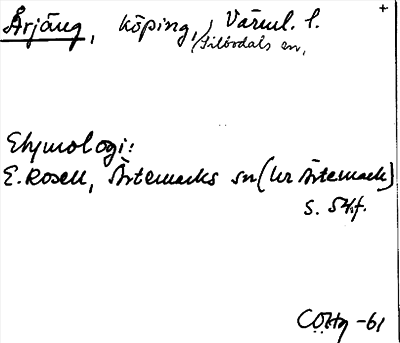 +
Årjäng, köping, Värml. l.
/Silbodals sn,
Etymologi:
E. Rosell, Ärtemarks sn (ur Ärtemark)
s. 54f.
CÖHg -61